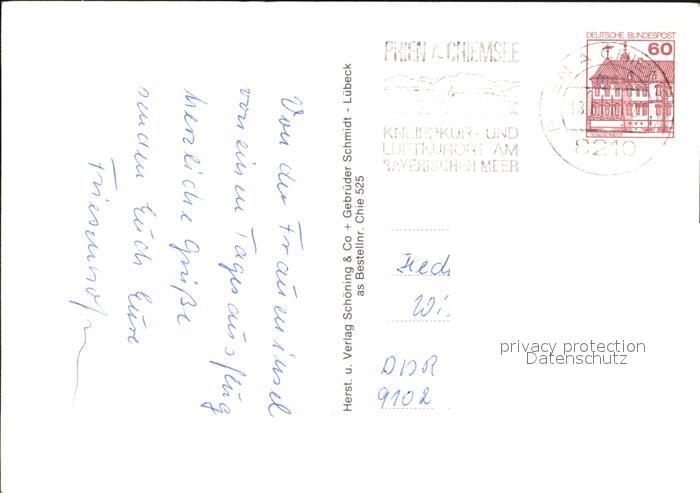 Von der Fraueninsel
von einem Tagesausflug
herzliche Grüße
senden Euch Eure
Herst. u. Verlag Schöning & Co + Gebrüder Schmidt - Lübeck
as Bestellnr. Chie 525
PRIEN A. CHIEMSEE
KNEIPPKUR- UND
LUFTKURORT AM
BAYERISCHEN MEER
8210
DEUTSCHE BUNDESPOST
60
Wi.
DDR
9102
privacy protection
Datenschutz